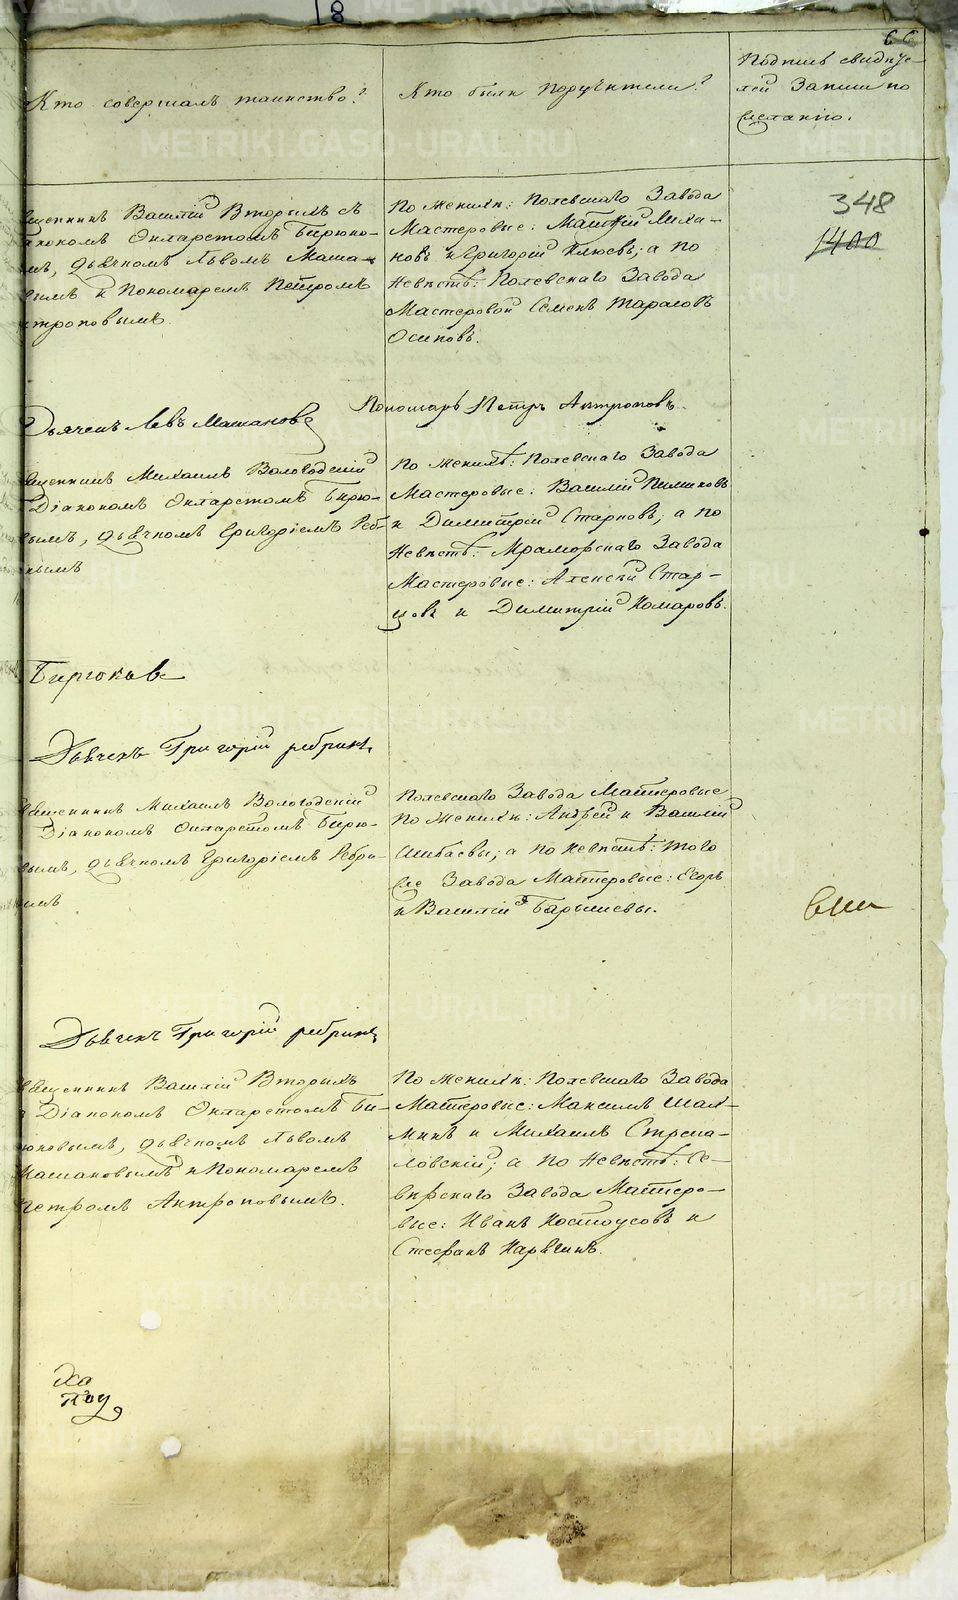 18
66
Кто совершалъ таинство?
Кто были поручители?
Подпись свидѣте-
лей записи по
желанію.
348
1400
Священникъ Василій Вторыхъ съ
Діакономъ Онларетомъ Бирюко-
мъ, дьячкомъ Львомъ Маша-
вымъ и Пономаремъ Петромъ
нтроповымъ.
По женихѣ: Полевскаго Завода
Мастеровые: Матвѣй
новъ и Григорій Клюевъ; а по
невѣстѣ: Полевскаго Завода
Мастеровой Семенъ Тарасовъ
Осиповъ.
Дьячекъ Левъ Машановъ
Пономарь Петръ Антроповъ.
Священникъ Михаилъ Вологодскій
Діакономъ Онларетомъ Бирю-
вымъ, дьячкомъ Григоріемъ Реб-
нымъ
По женихѣ: Полевскаго Завода
Мастеровые: Василій
и Димитрій Старковъ; а по
невѣстѣ: Мраморскаго Завода
Мастеровые: Алексѣй Стар-
цовъ и Димитрій Комаровъ.
Бирюковъ
Дьячекъ Григорій Ребринъ
Священникъ Михаилъ Вологодскій
Діакономъ Онларетомъ Бирю-
вымъ, дьячкомъ Григоріемъ Ребри-
нымъ
Полевскаго Завода Мастеровые
По женихѣ: Андрей и Василій
Ашбаевы; а по невѣстѣ: того
же Завода Мастеровые: Егоръ
и Василій Барышевы.
Дьячекъ Григорій Ребринъ
Священникъ Василій Вторыхъ
Діакономъ Онларетомъ Би-
рюковымъ, дьячкомъ Львомъ
Машановымъ и Пономаремъ
Петромъ Антроповымъ.
По женихѣ: Полевскаго Завода
Мастеровые: Максимъ Шал-
минъ и Михаилъ Стрема-
ловскій; а по невѣстѣ: Сѣ-
верскаго Завода Мастеро-
вые: Иванъ Костоусовъ и
Стефанъ
METRIKI.GASO-URAL.RU